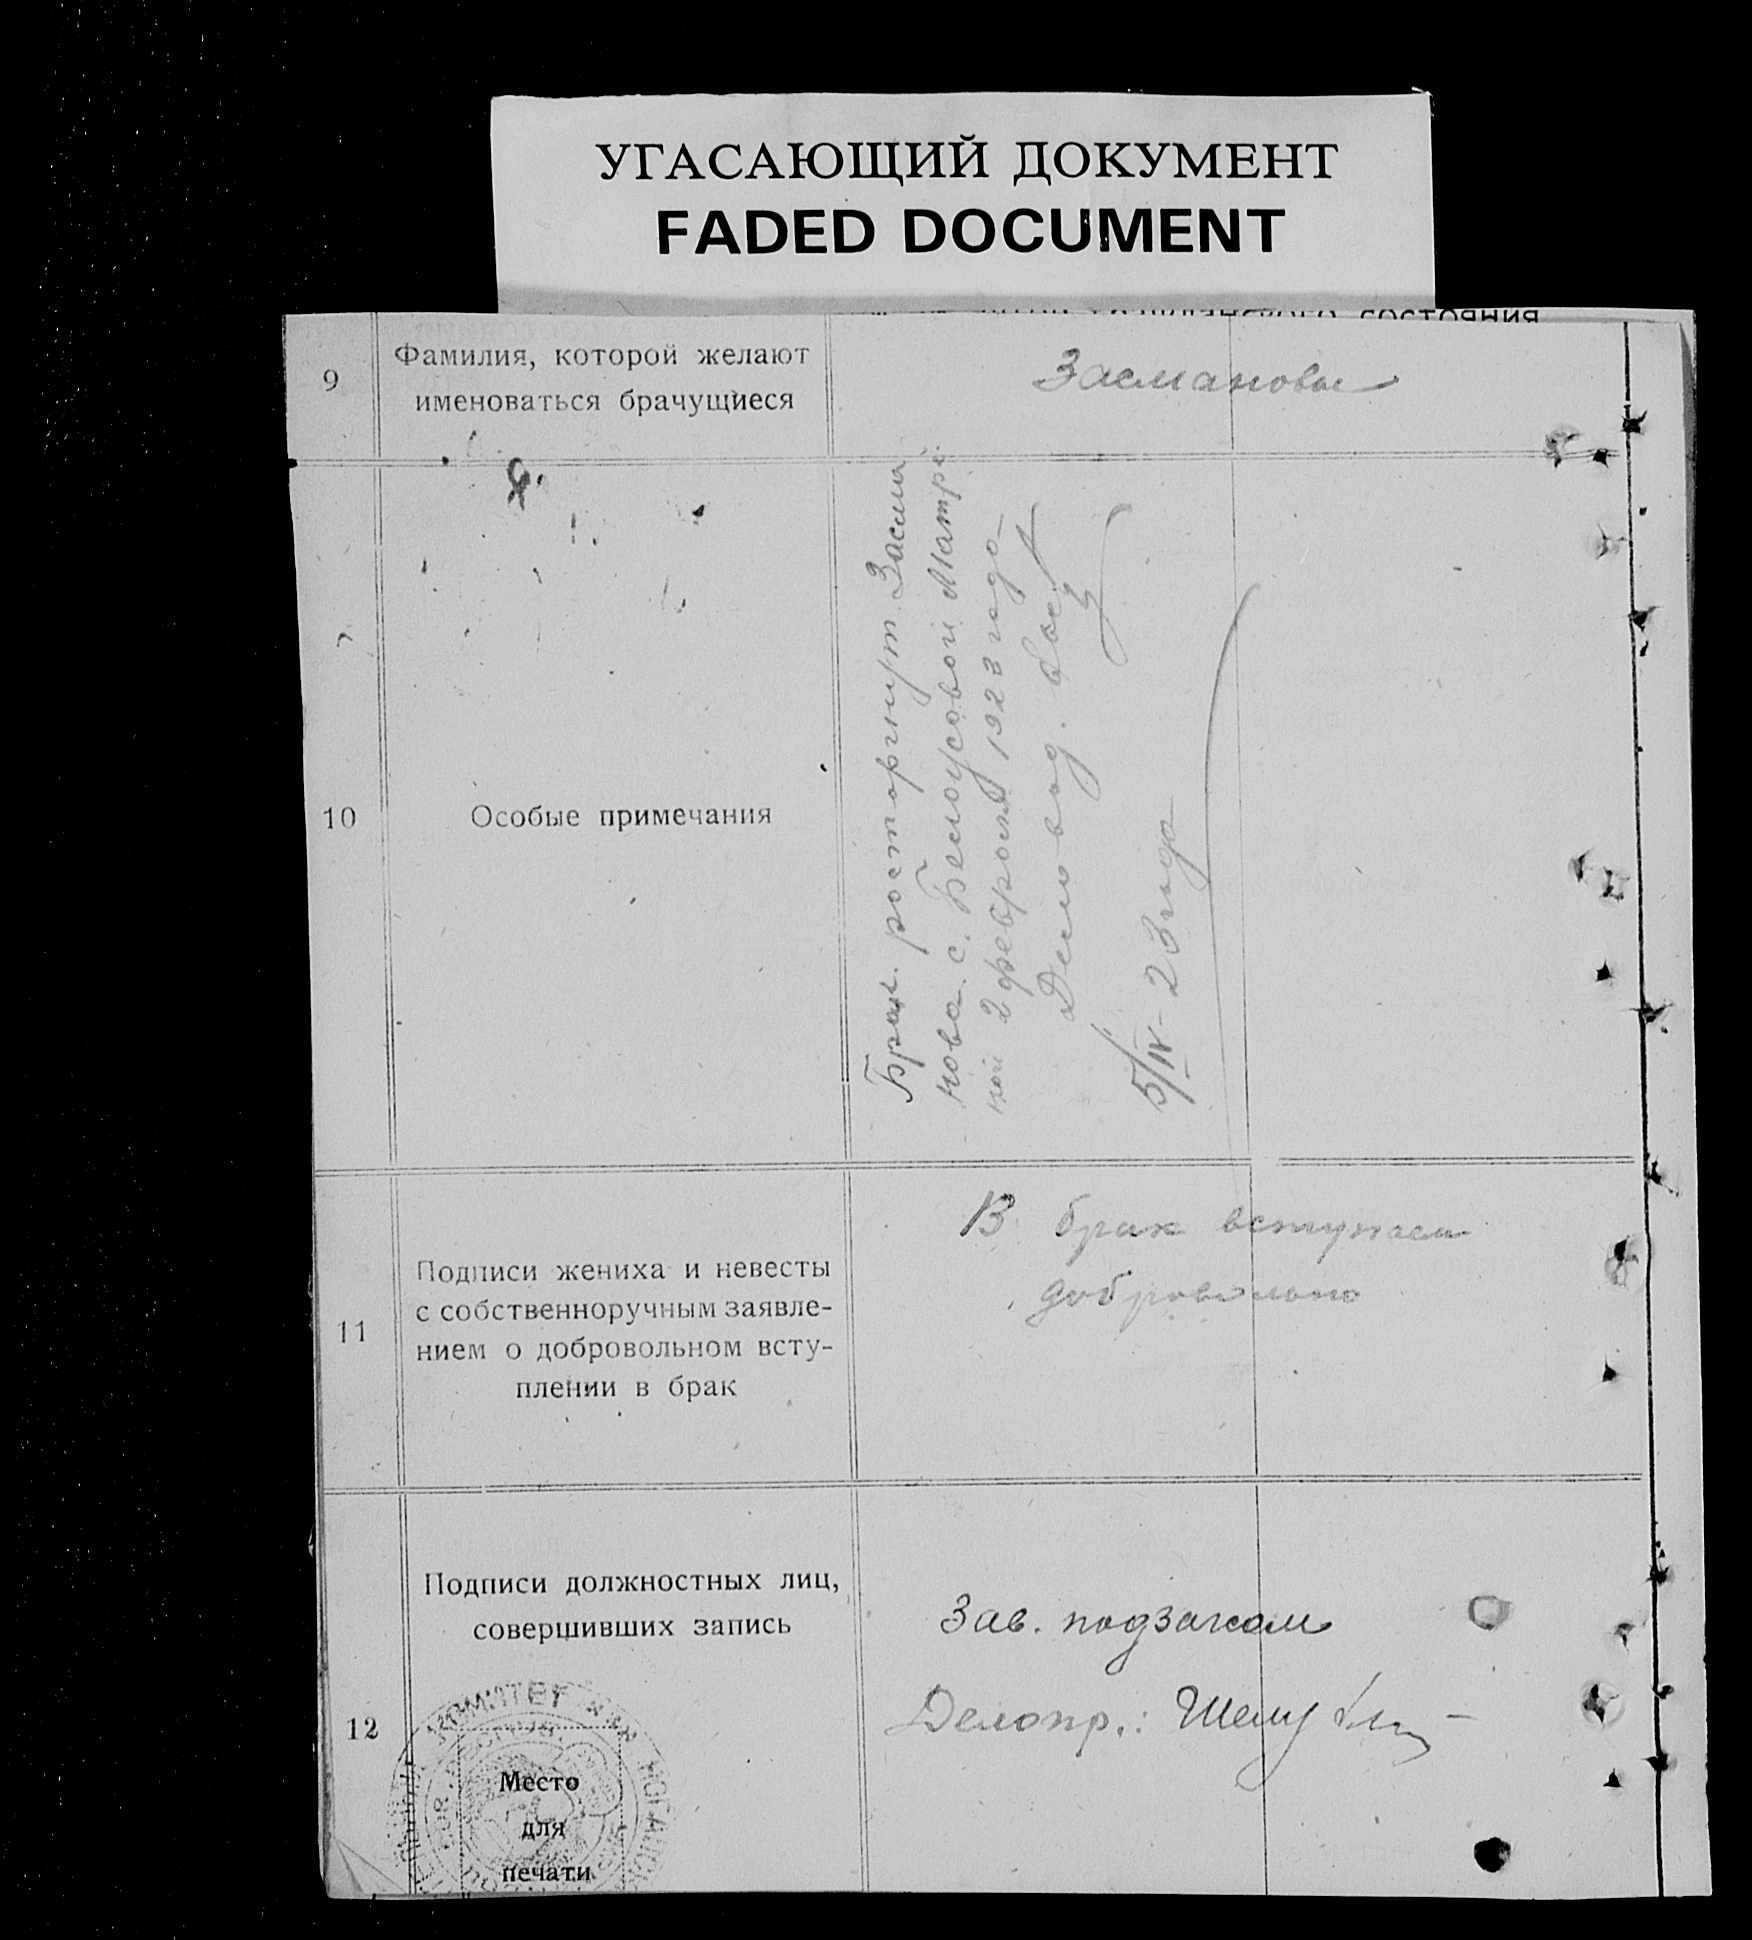 УГАСАЮЩИЙ ДОКУМЕНТ
FADED DOCUMENT
состояния
9
Фамилия, которой желают
именоваться брачущиеся
Засмановы
10
Особые примечания
Брак расторгнут Засма
нова с. Белоусовой Матре
ной 2 февраля 1923 года
5/IV-23 года
11
Подписи жениха и невесты
с собственноручным заявле-
нием о добровольном всту-
плении в брак
В брак вступаем
добровольно
12
Подписи должностных лиц,
совершивших запись
Зав. подзагсом
Делопр.:
КОМИТЕТ
Место
для
печати